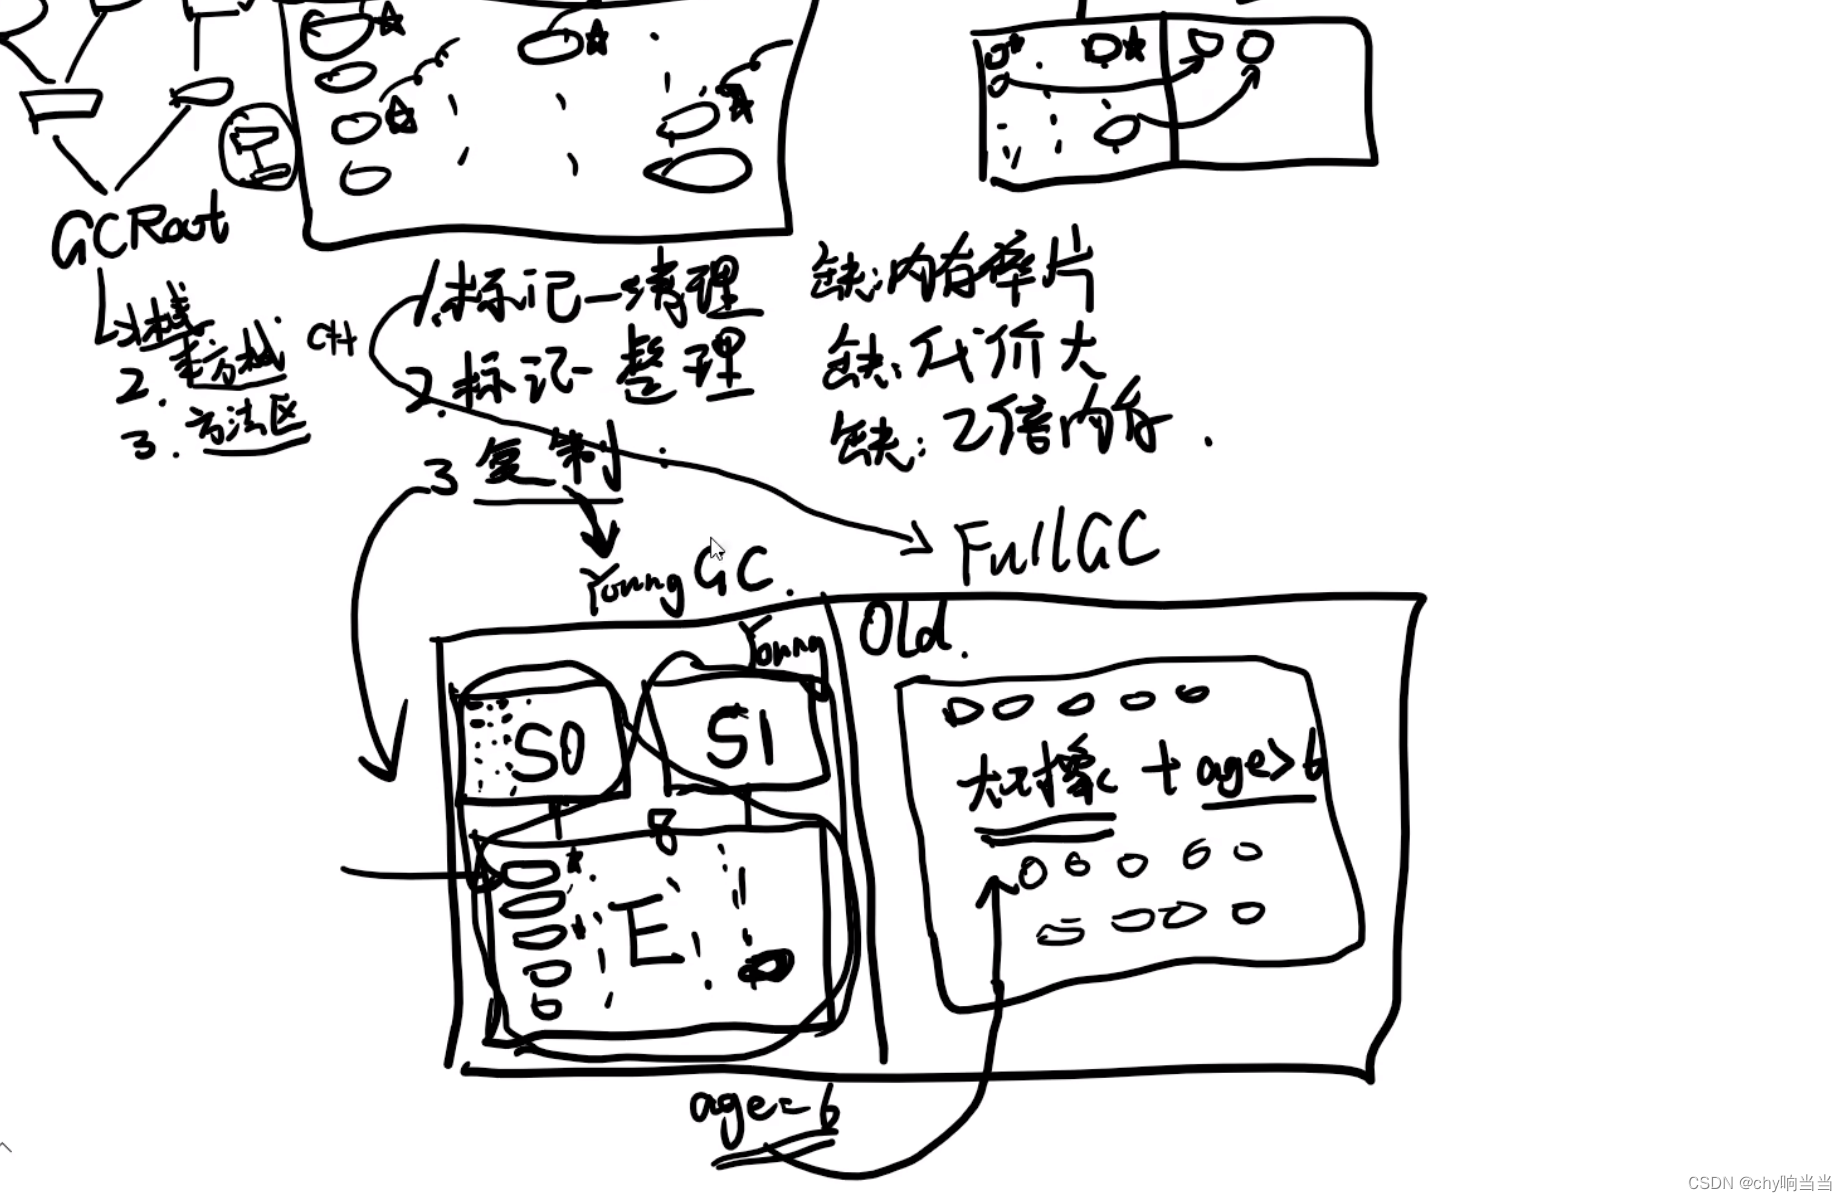 GCRoot
1.栈
2.本方栈 CH
3.方法区
1.标记-清理 缺:内存碎片
2.标记-整理 缺:代价大
3 复制 缺:2倍内存.
FullGC
Young GC.
Young
Old.
S0 S1
大对象 + age>6
8
E
age=6
CSDN @chy响当当